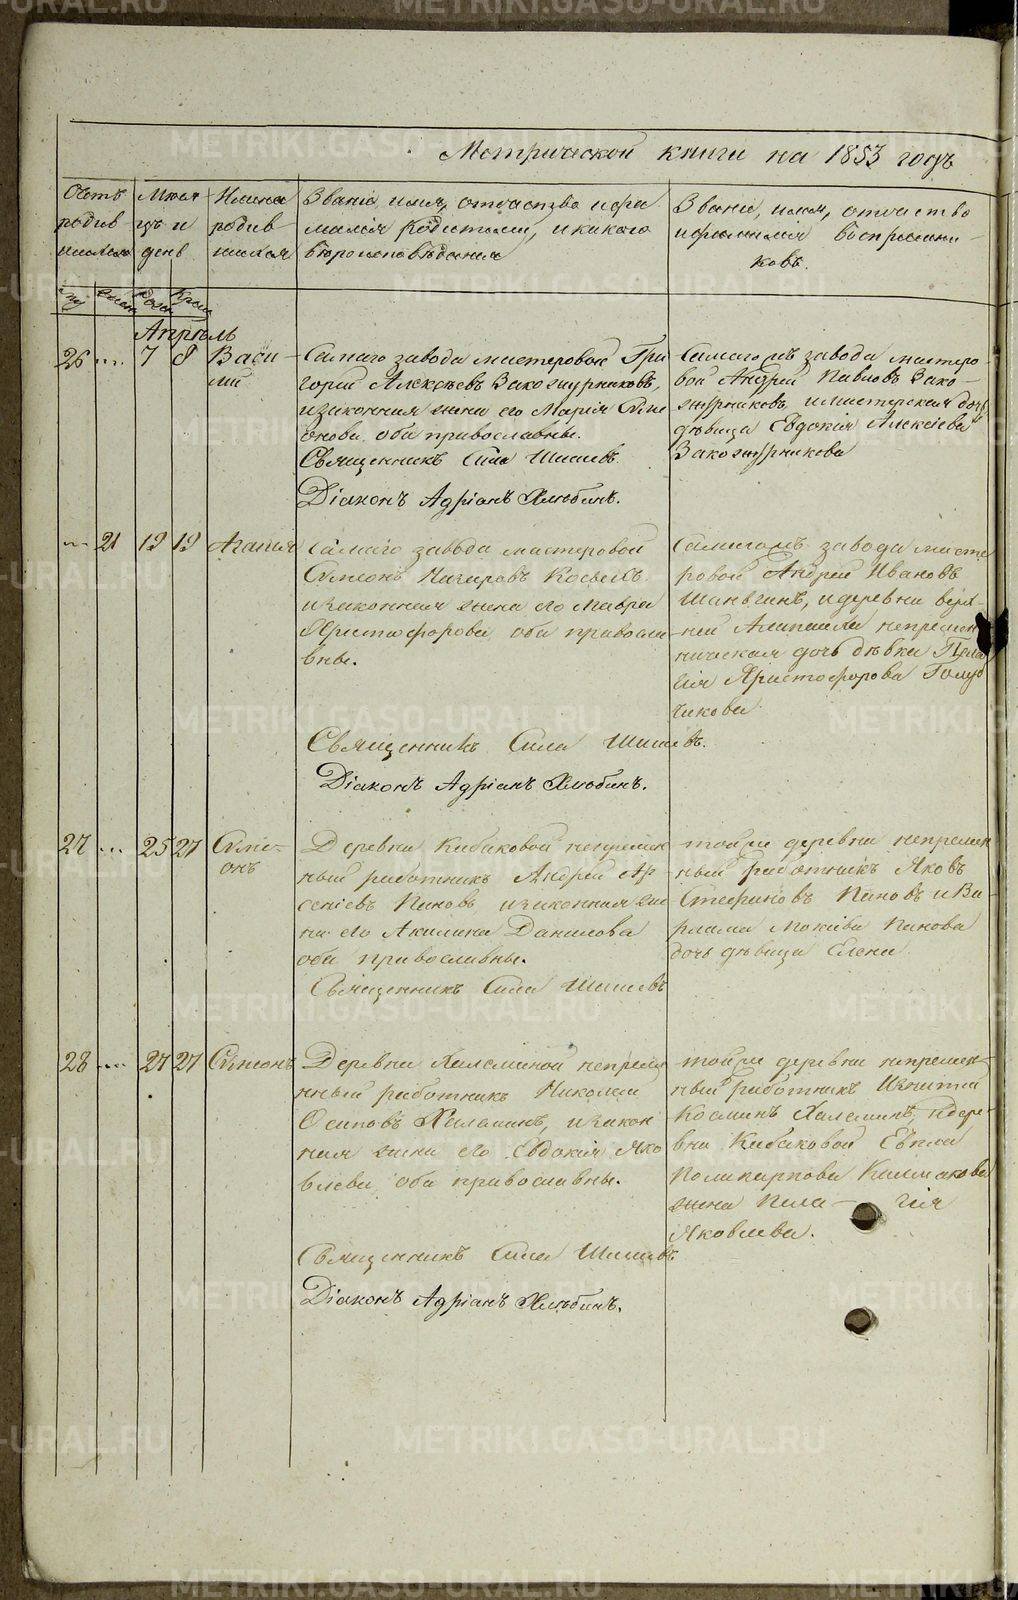 Метрической книги на 1853 годъ
Счетъ родив шихся
Месяцъ и день
Имена родив шихся
Звание имя, отчество и фа
милия родителей, и какого
вероисповѣдания
Звание, имя, отчество
и фамилия восприемни
ковъ.
Апрѣль
26 ... 7 8 Васи
лий
Самаго завода мастеровой Гри
горий Алексѣевъ Закожурниковъ,
и законная жена его Мария Симе
онова, оба православны.
Священникъ Сила Шишевъ.
Дiаконъ Адрiанъ Хлюбинъ.
Самагожъ завода мастеро
вой Андрей Павловъ Зако
журниковъ и мастерская дочь
дѣвица Евдокия Алексеева
Закожурникова
... 21 19 19 Агапия
Самаго завода мастеровой
Симеонъ Назаровъ
и законная жена его Мавра
Христофорова оба правосла
вны.
Священникъ Сила Шишевъ.
Дiаконъ Адрiанъ Хлюбинъ.
Самагожъ завода масте
ровой Андрей Ивановъ
Шаньгинъ, и деревни верх
ней Алапаихи непремен
ническая дочь дѣвка Пела
гия Христофорова Голуб
чикова
27 ... 25 27 Симе
онъ
Деревни Кабаковой непремен
ный работникъ Андрей Ар
сениевъ Пановъ и законная же
на его Акилина Данилова
оба православны.
Священникъ Сила Шишевъ
тойже деревни непремен
ный работникъ Яковъ
Стефановъ Пановъ и Ва
рлама Мокиева Панова
дочь дѣвица Елена
28 ... 27 27 Симеонъ
Деревни Халеминой непремен
ный работникъ Николай
Осиповъ Халеминъ, и закон
ная жена его Евдокия Яко
влева оба православны.
Священникъ Сила Шишевъ
Дiаконъ Адрiанъ Хлюбинъ.
тойже деревни непремен
ный работникъ Игнатий
Косминъ Халеминъ, и дере
вни Кабаковой Евпла
Поликарпова Калмакова
жена Пела – гия
Яковлева.
METRIKI.GASO-URAL.RU